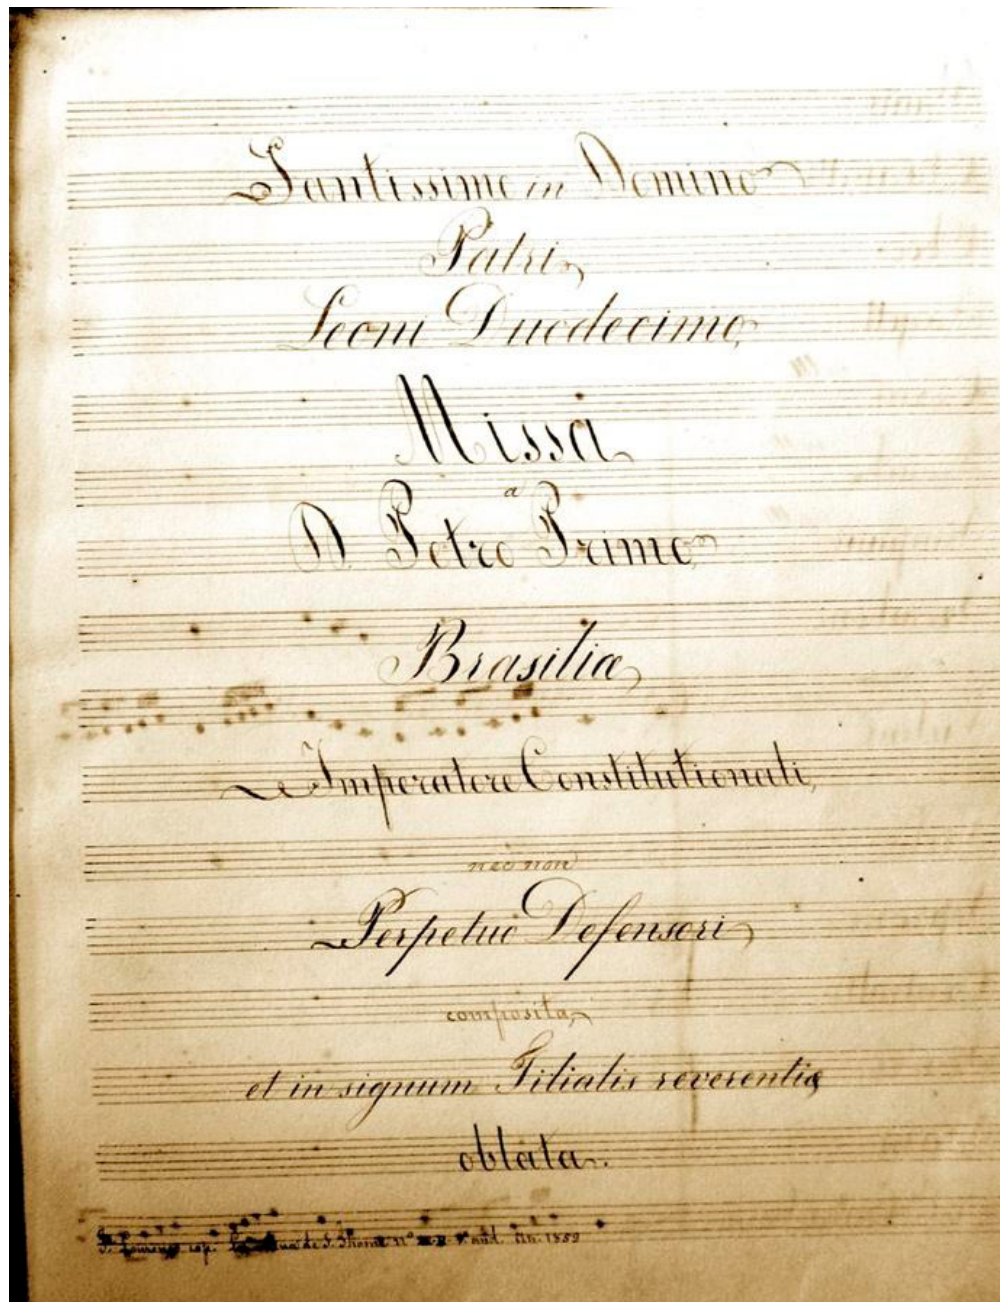 Santissimo in Domino
Patri
Leoni Duodecimo,
Missa
a
D Petro Primo
Brasiliæ
Imperatore Constitutionali,
nec non
Perpetuo Defensori
composita,
et in signum Filialis reverentiæ
oblata.
cop. de S. Thomé nº 1889